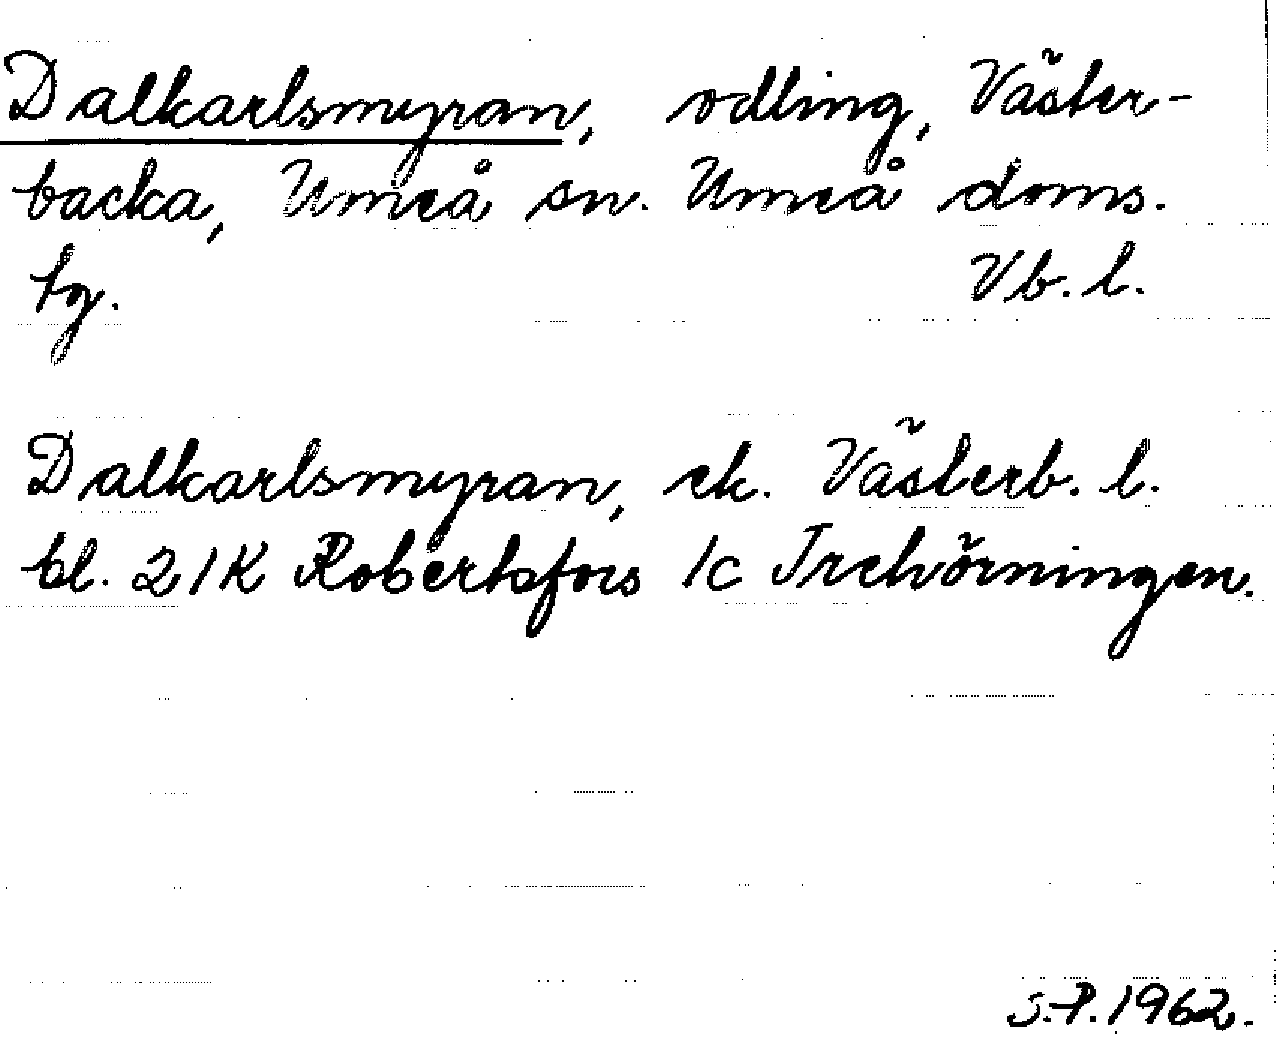 Dalkarlsmyran, odling, Väster-
backa, Umeå sn. Umeå doms.
tg. Vb. l.
Dalkarlsmyran, ek. Västerb. l.
bl. 21K Robertsfors 1c Trehörningen.
S.P. 1962.